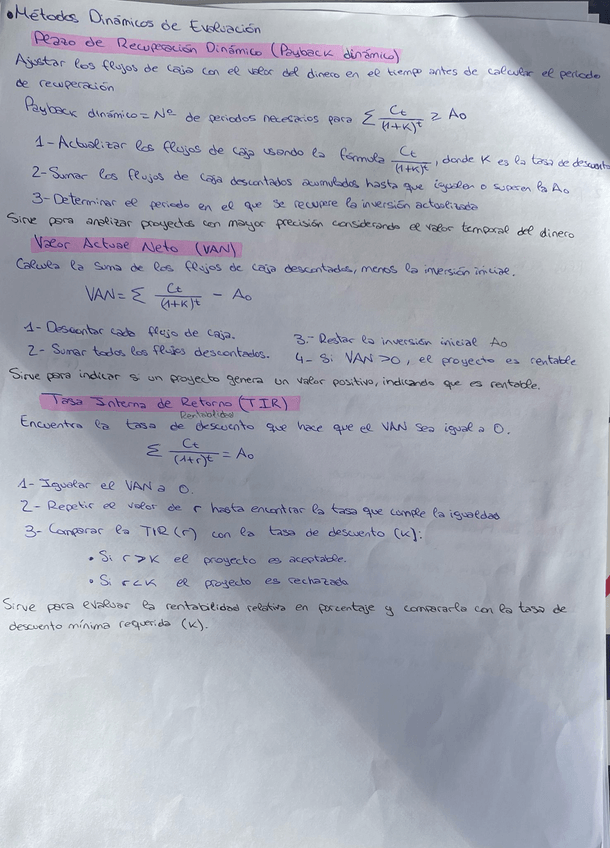 • Métodos Dinámicos de Evaluación
Plazo de Recuperación Dinámico (Payback dinámico)
Ajustar los flujos de caja con el valor del dinero en el tiempo antes de calcular el periodo
de recuperación
Payback dinámico = Nº de periodos necesarios para Σ Ct/(1+K)^t ≥ Ao
1- Actualizar los flujos de caja usando la fórmula Ct/(1+K)^t, donde K es la tasa de descuento
2- Sumar los flujos de caja descontados acumulados hasta que igualen o superen la Ao
3- Determinar el periodo en el que se recupere la inversión actualizada
Sirve para analizar proyectos con mayor precisión considerando el valor temporal del dinero
Valor Actual Neto (VAN)
Calcula la suma de los flujos de caja descontados, menos la inversión inicial.
VAN = Σ Ct/(1+K)^t - Ao
1- Descontar cada flujo de caja. 3.- Restar la inversión inicial Ao
2- Sumar todos los flujos descontados. 4- Si VAN >0, el proyecto es rentable
Sirve para indicar si un proyecto genera un valor positivo, indicando que es rentable.
Tasa Interna de Retorno (TIR)
Rentabilidad
Encuentra la tasa de descuento que hace que el VAN sea igual a 0.
Σ Ct/(1+r)^t = Ao
1- Igualar el VAN a 0.
2- Repetir el valor de r hasta encontrar la tasa que cumple la igualdad
3- Comparar la TIR (r) con la tasa de descuento (K):
• Si r > K el proyecto es aceptable.
• Si r < K el proyecto es rechazado
Sirve para evaluar la rentabilidad relativa en porcentaje y compararla con la tasa de
descuento mínima requerida (K).